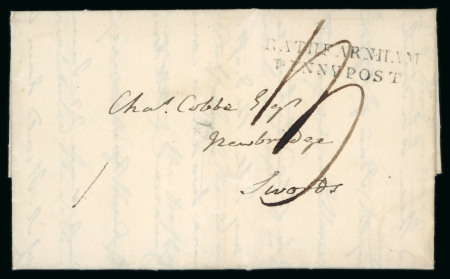 RATHFARNHAM
PENNY POST
Chaˢ. Cobbe Esqʳ
Newbridge
Swords